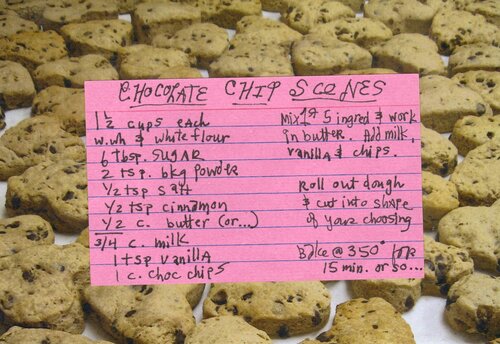 CHOCOLATE CHIP SCONES
1 1/2 cups each
w.wh & white flour
6 tbsp. SUGAR
2 tsp. bkg powder
1/2 tsp salt
1/2 tsp cinnamon
1/2 c. butter (or...)
3/4 c. milk
1 tsp vanilla
1 c. choc chips
Mix 1st 5 ingred & work
in butter. Add milk,
vanilla & chips.
Roll out dough
& cut into shape
of your choosing
Bake @ 350° for
15 min. or so...